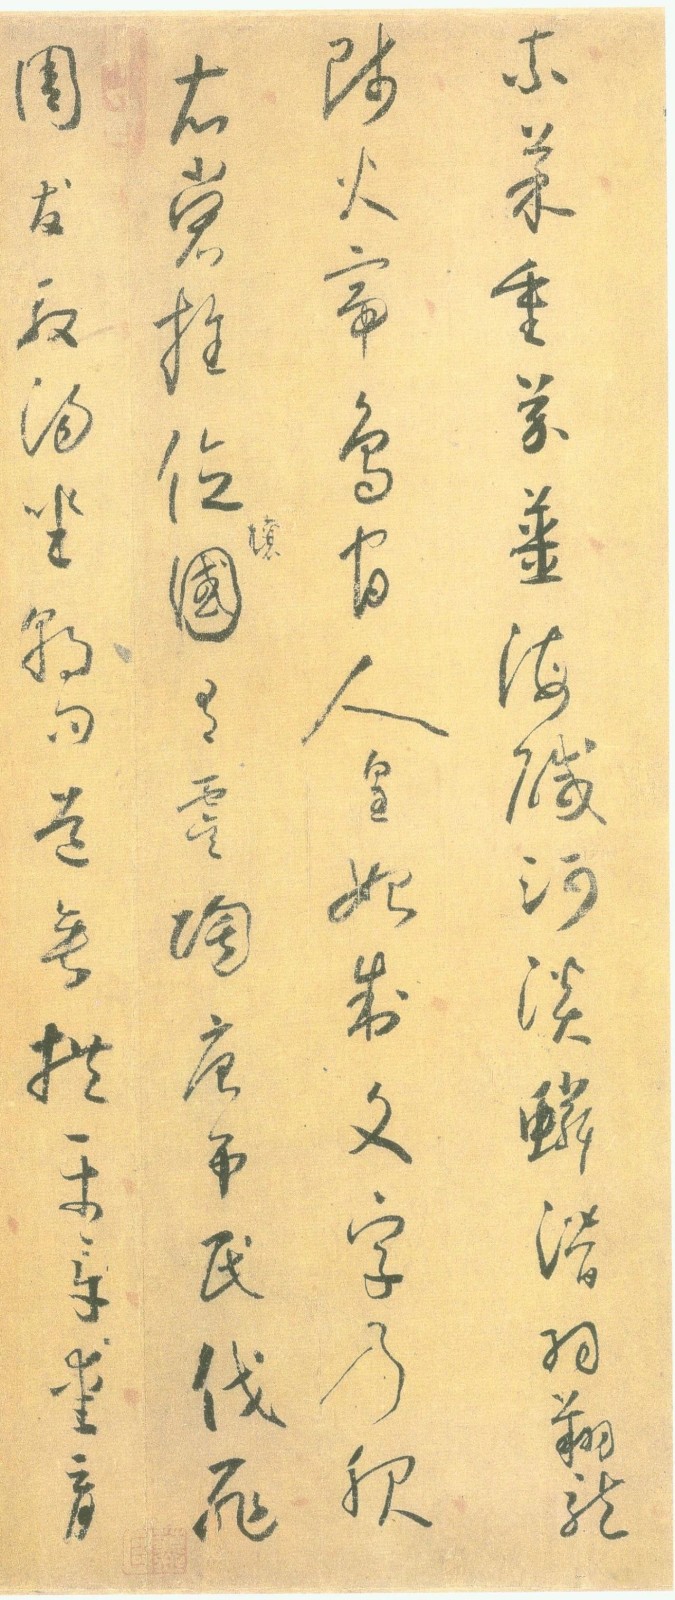 柰菜重芥薑海鹹河淡鱗潛羽翔龍
師火帝鳥官人皇始制文字乃服
衣裳推位讓國有虞陶唐弔民伐罪
周發殷湯坐朝問道垂拱平章愛育